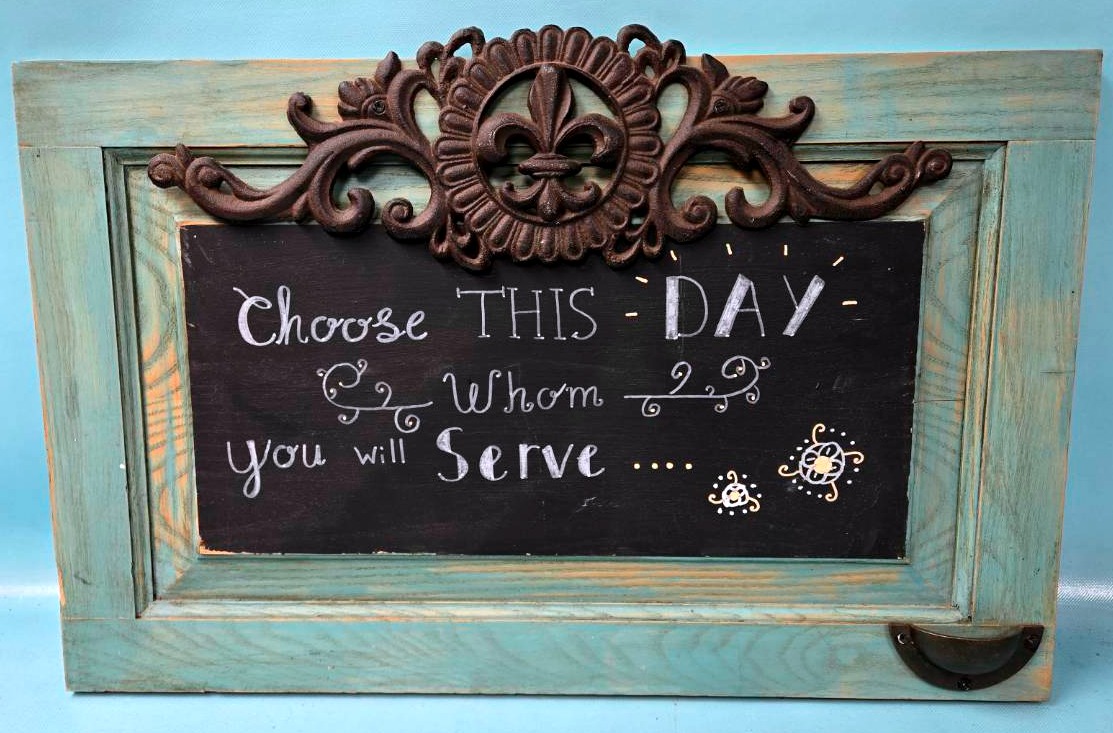 Choose THIS DAY
Whom
you will Serve ....